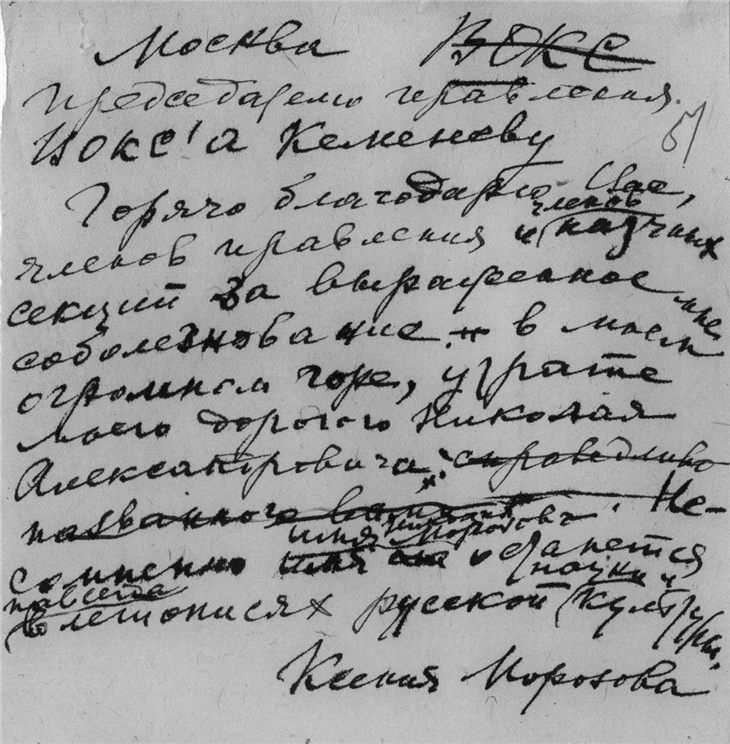 Москва ВОКС
Председателю правления
ВОКС'а Кеменеву
Горячо благодарю Вас,
членов правления и членов научных
секций за выраженное мне
соболезнование в моем
огромном горе, утрате
моего дорогого Николая
Александровича, справедливо
названного вами Не-
сомненно имя Николая Морозова останется
навсегда в летописях русской науки и культуры.
Ксения Морозова